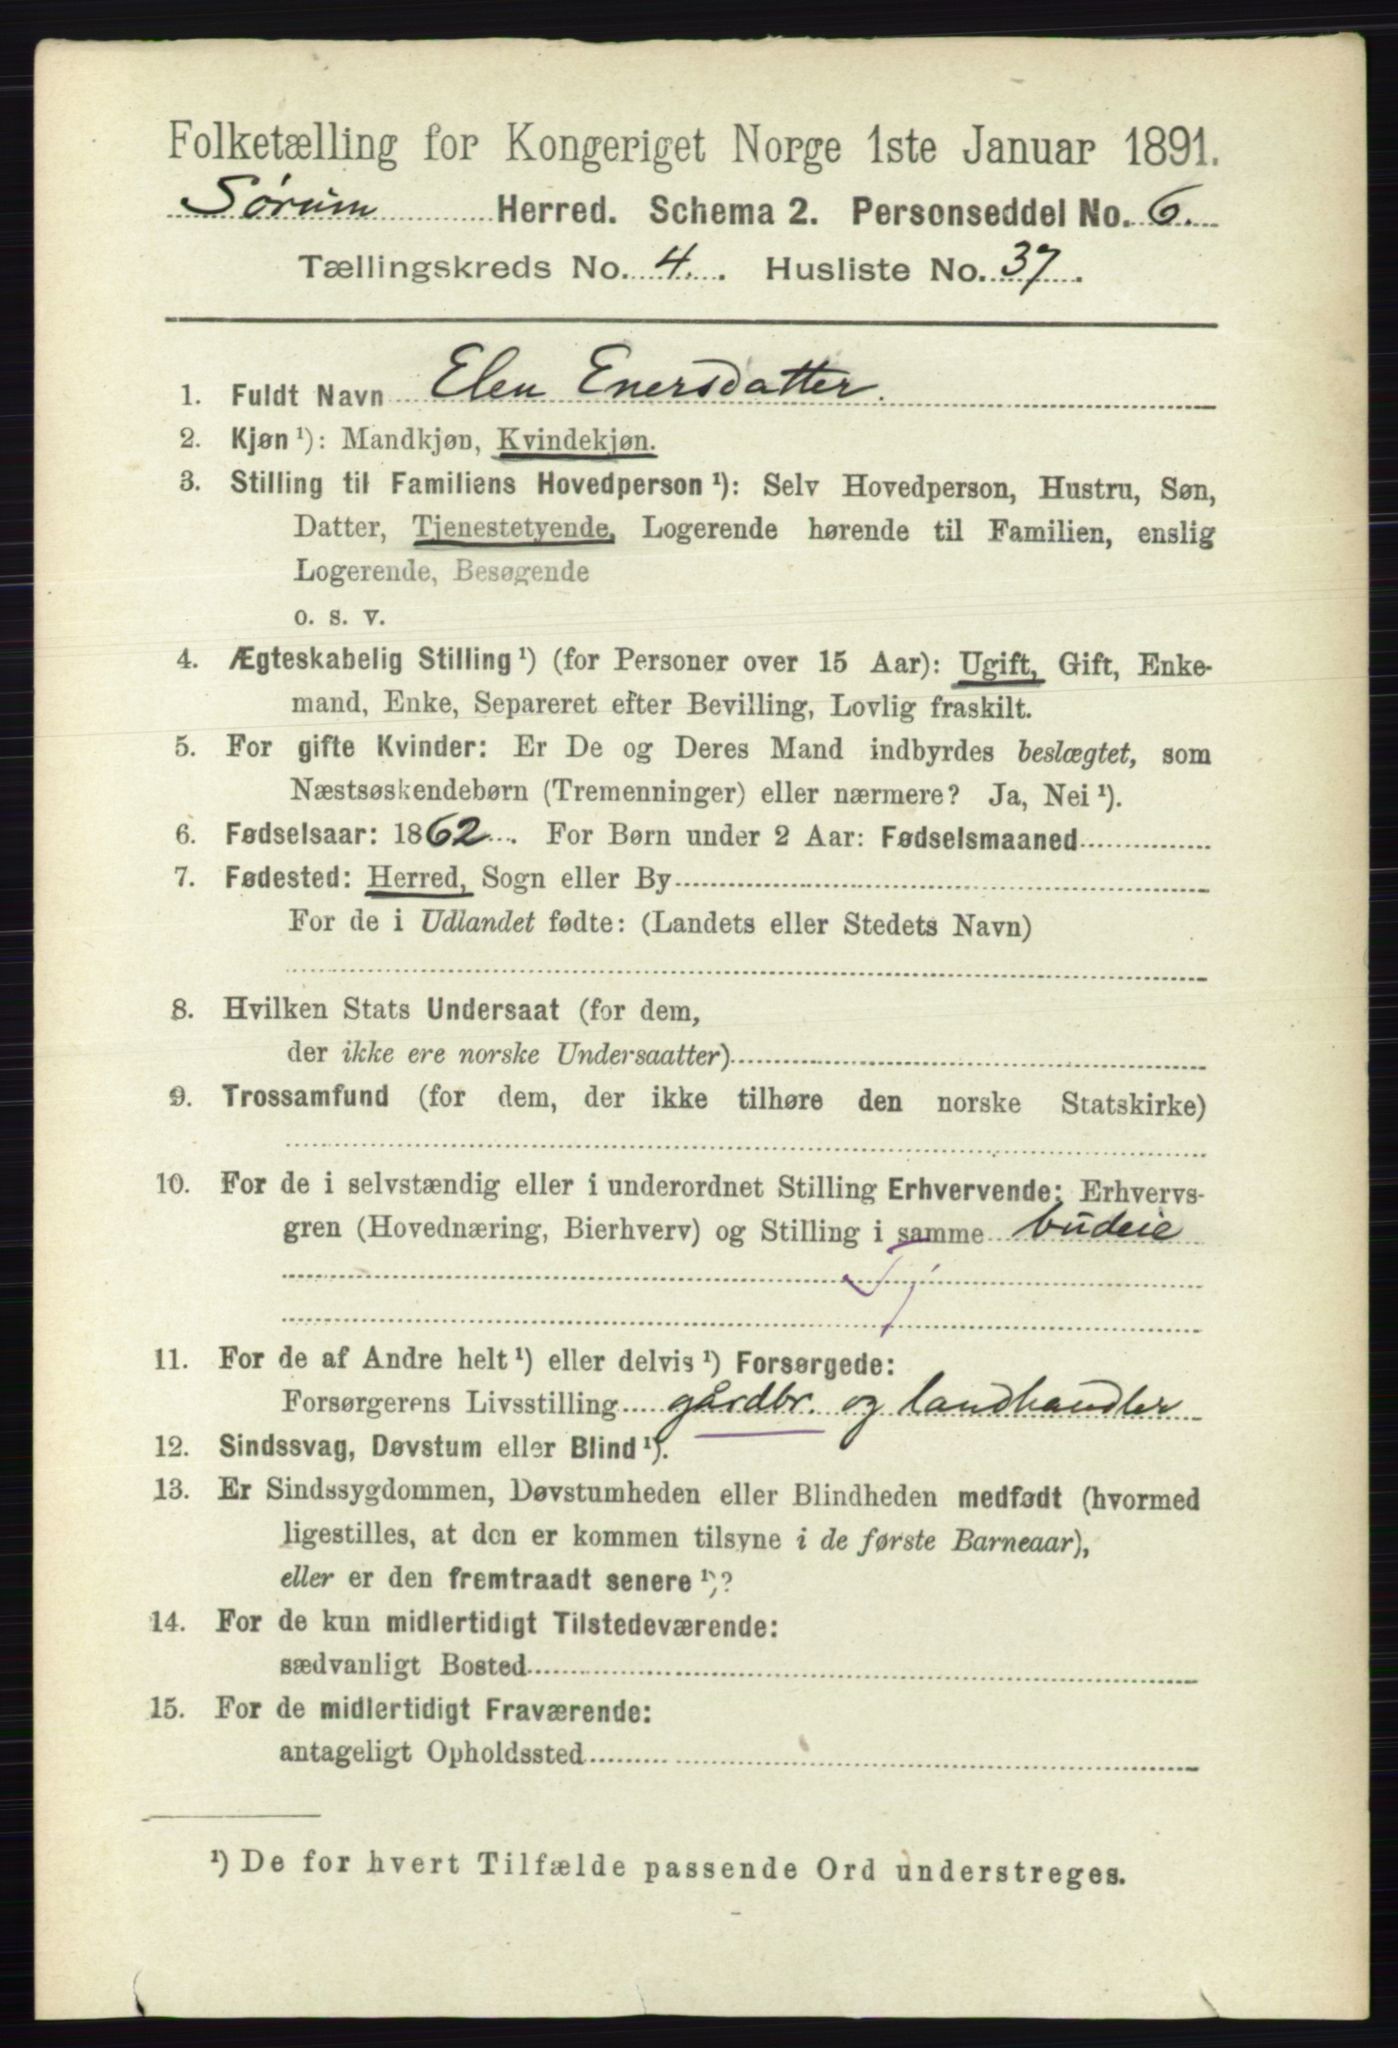 Folketælling for Kongeriget Norge 1ste Januar 1891.
Sørum Herred. Schema 2. Personseddel No. 6.
Tællingskreds No. 4. Husliste No. 37.
1. Fuldt Navn Elen Enersdatter.
2. Kjøn ¹): Mandkjøn, Kvindekjøn.
3. Stilling til Familiens Hovedperson ¹): Selv Hovedperson, Hustru, Søn,
Datter, Tjenestetyende, Logerende hørende til Familien, enslig
Logerende, Besøgende
o. s. v.
4. Ægteskabelig Stilling ¹) (for Personer over 15 Aar): Ugift, Gift, Enke-
mand, Enke, Separeret efter Bevilling, Lovlig fraskilt.
5. For gifte Kvinder: Er De og Deres Mand indbyrdes beslægtet, som
Næstsøskendebørn (Tremenninger) eller nærmere? Ja, Nei ¹).
6. Fødselsaar: 1862. For Børn under 2 Aar: Fødselsmaaned
7. Fødested: Herred, Sogn eller By
For de i Udlandet fødte: (Landets eller Stedets Navn)
8. Hvilken Stats Undersaat (for dem,
der ikke ere norske Undersaatter)
9. Trossamfund (for dem, der ikke tilhøre den norske Statskirke)
10. For de i selvstændig eller i underordnet Stilling Erhvervende: Erhvervs-
gren (Hovednæring, Bierhverv) og Stilling i samme budeie
Tj
11. For de af Andre helt ¹) eller delvis ¹) Forsørgede:
Forsørgerens Livsstilling gårdbr. og landhandler
12. Sindssvag, Døvstum eller Blind ¹).
13. Er Sindssygdommen, Døvstumheden eller Blindheden medfødt (hvormed
ligestilles, at den er kommen tilsyne i de første Barneaar),
eller er den fremtraadt senere ¹)?
14. For de kun midlertidigt Tilstedeværende:
sædvanligt Bosted
15. For de midlertidigt Fraværende:
antageligt Opholdssted
¹) De for hvert Tilfælde passende Ord understreges.